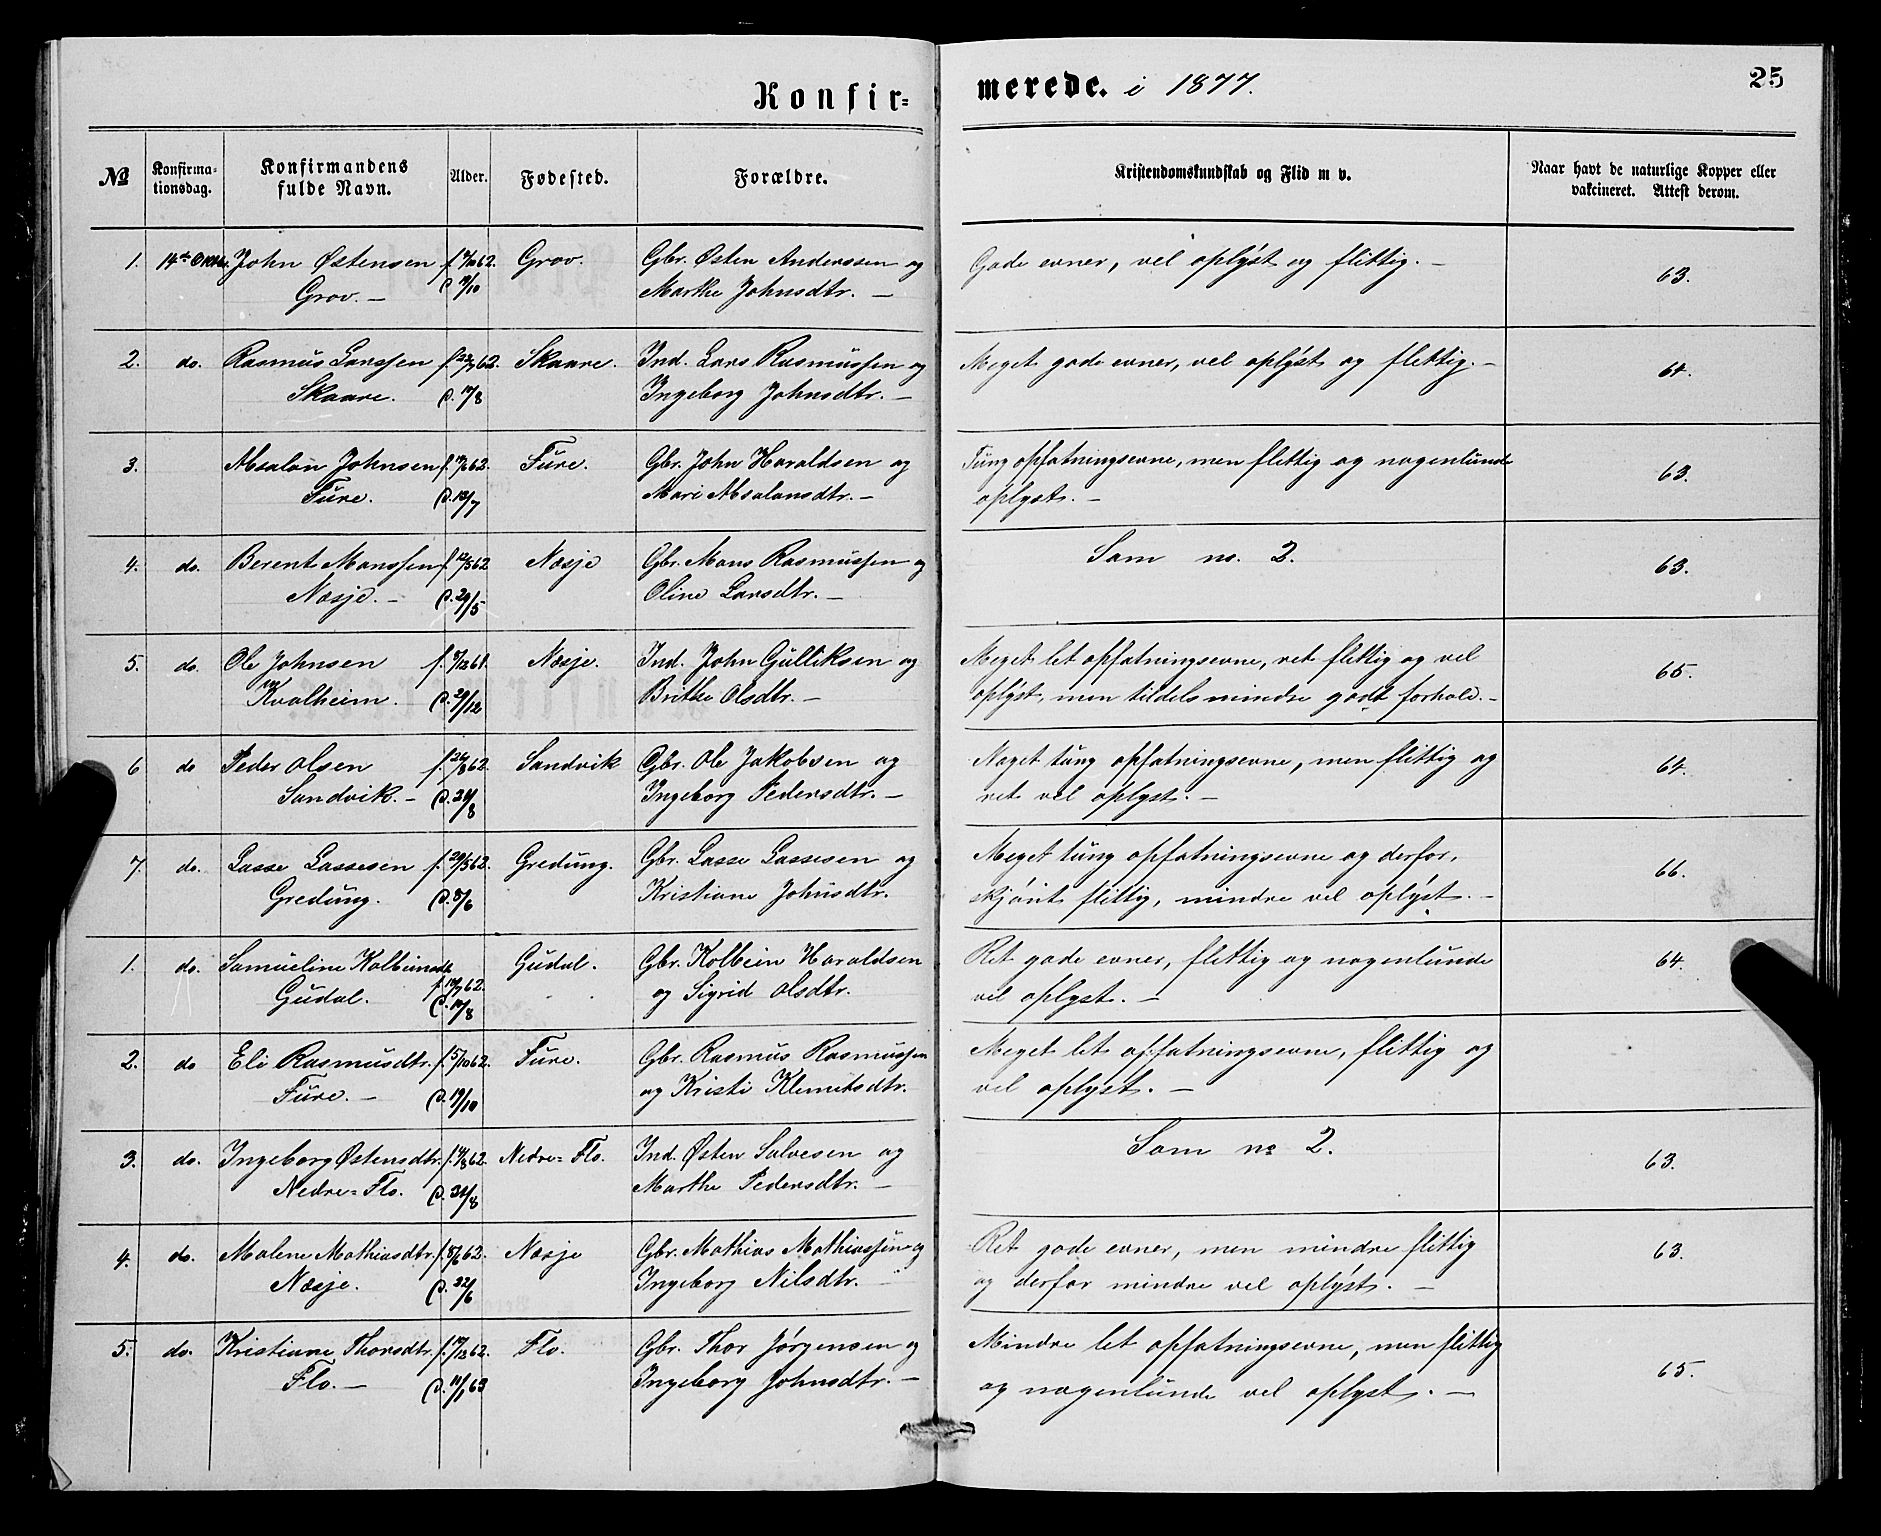 Konfirmerede. i 1877.
25
№
Konfirmationsdag.
Konfirmandens fulde Navn.
Alder.
Fødested.
Forældre.
Kristendomskundskab og Flid m v.
Naar havt de naturlige Kopper eller vakcineret. Attest derom.
1. 14de Oktbr. John Østensen Grov. Gbr. Østen Anderssen og Gode evner, vel oplyst og flittig. — 63.
Grov. — Marthe Johnsdtr. —
2. do. Rasmus Larssen f. 22/7 62. Skaare. Ind. Lars Rasmussen og Meget gode evner, vel oplyst og flittig. — 64.
Skaare. Ingeborg Johnsdtr. —
3. Absalon Johnsen Fure. Gbr. John Haraldsen og Tung opfatningsevne, men flittig og nogenlunde 63.
Fure. d. 13/7 Mari Absalonsdtr. — oplyst. —
4. do. Berent Monssen f. 12/5 62 Næsje Gbr. Mons Rasmussen og Som no. 2. 63.
Næsje. — d. 29/5 Oline Larsdtr. —
5. do. Ole Johnsen Næsje. Ind. John Gulliksen og Meget let opfatningsevne, ret flittig og vel 65.
Kvalheim. d. 29/12 Brithe Olsdtr. — oplyst, men tildels mindre godt forhold. —
6 do Peder Olsen Sandvik Gbr. Ole Jakobsen og Noget tung opfatningsevne, men flittig og 64.
Sandvik. — d. 31/8 Ingeborg Pedersdtr. — ret vel oplyst. —
7. do. Lasse Lassesen f. 29/5 62. Gredung. Gbr. Lasse Lassesen og Meget tung opfatningsevne og derfor, 66.
Gredung. d. 8/6 Kristiane Johnsdtr. skjønt flittig, mindre vel oplyst. —
1. do. Samueline Kolbeinsdtr Gudal. Gbr. Kolbein Haraldsen Ret gode evner, flittig og nogenlunde 64.
Gudal. og Sigrid Olsdtr. vel oplyst. —
2. do Eli Rasmusdtr. f. 5/10 62. Fure. Gbr. Rasmus Rasmussen Meget let opfatningsevne, flittig og
Fure. — d. 19/10 og Kristi Klemetsdtr. vel oplyst. —
3. do. Ingeborg Østensdtr. Nedre=Flo. Ind. Østen Salvesen og Som no 2. 63.
Nedre=Flo. d. 31/8 Marthe Pedersdtr. —
4. do. Malene Mathiasdtr. f. 8/6 62. Næsje Gbr. Mathias Mathiassen og Ret gode evner, men mindre flittig 63.
Næsje. d. 22/6 Ingeborg Nilsdtr. — og derfor mindre vel oplyst. —
5. do. Kristiane Thorsdtr. Flo. Gbr. Thor Jørgensen og Mindre let opfatningsevne, men flittig 65.
Flo. — d. 11/1 63 Ingeborg Johnsdtr. — og nogenlunde vel oplyst. —